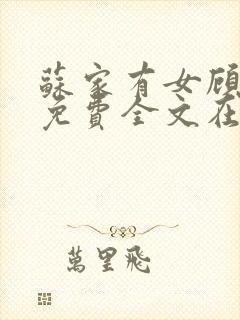 蘇家有女顧
免費全文在
萬里飛